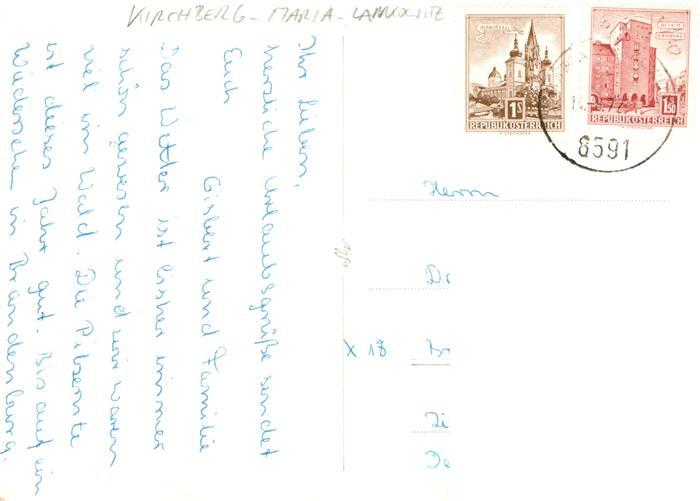 KIRCHBERG - MARIA - LANKOWITZ
Ihr Lieben,
herzliche Urlaubsgrüße sendet
Euch
Gisbert und Familie
Das Wetter ist bisher immer
schön gewesen und wir waren
viel im Wald. Die Pilzernte
ist dieses Jahr gut. Bis auf ein
Wiedersehn in Brandenburg.
MARIAZELL
1S
REPUBLIK ÖSTERREICH
WIEN
ERDBERG
1.50
REPUBLIK ÖSTERREICH
8591
Herrn
X 18